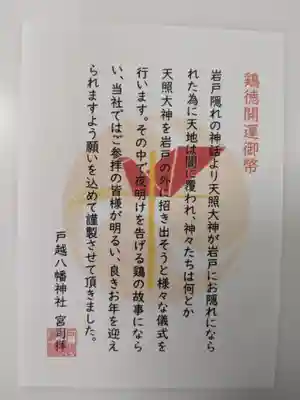 鶏徳開運御幣
岩戸隠れの神話より天照大神が岩戸にお隠れになら
れた為に天地は闇に覆われ、神々たちは何とか
天照大神を岩戸の外に招き出そうと様々な儀式を
行います。その中で夜明けを告げる鶏の故事になら
い、当社ではご参拝の皆様が明るい、良きお年を迎え
られますよう願いを込めて謹製させて頂きました。
戸越八幡神社 宮司拝